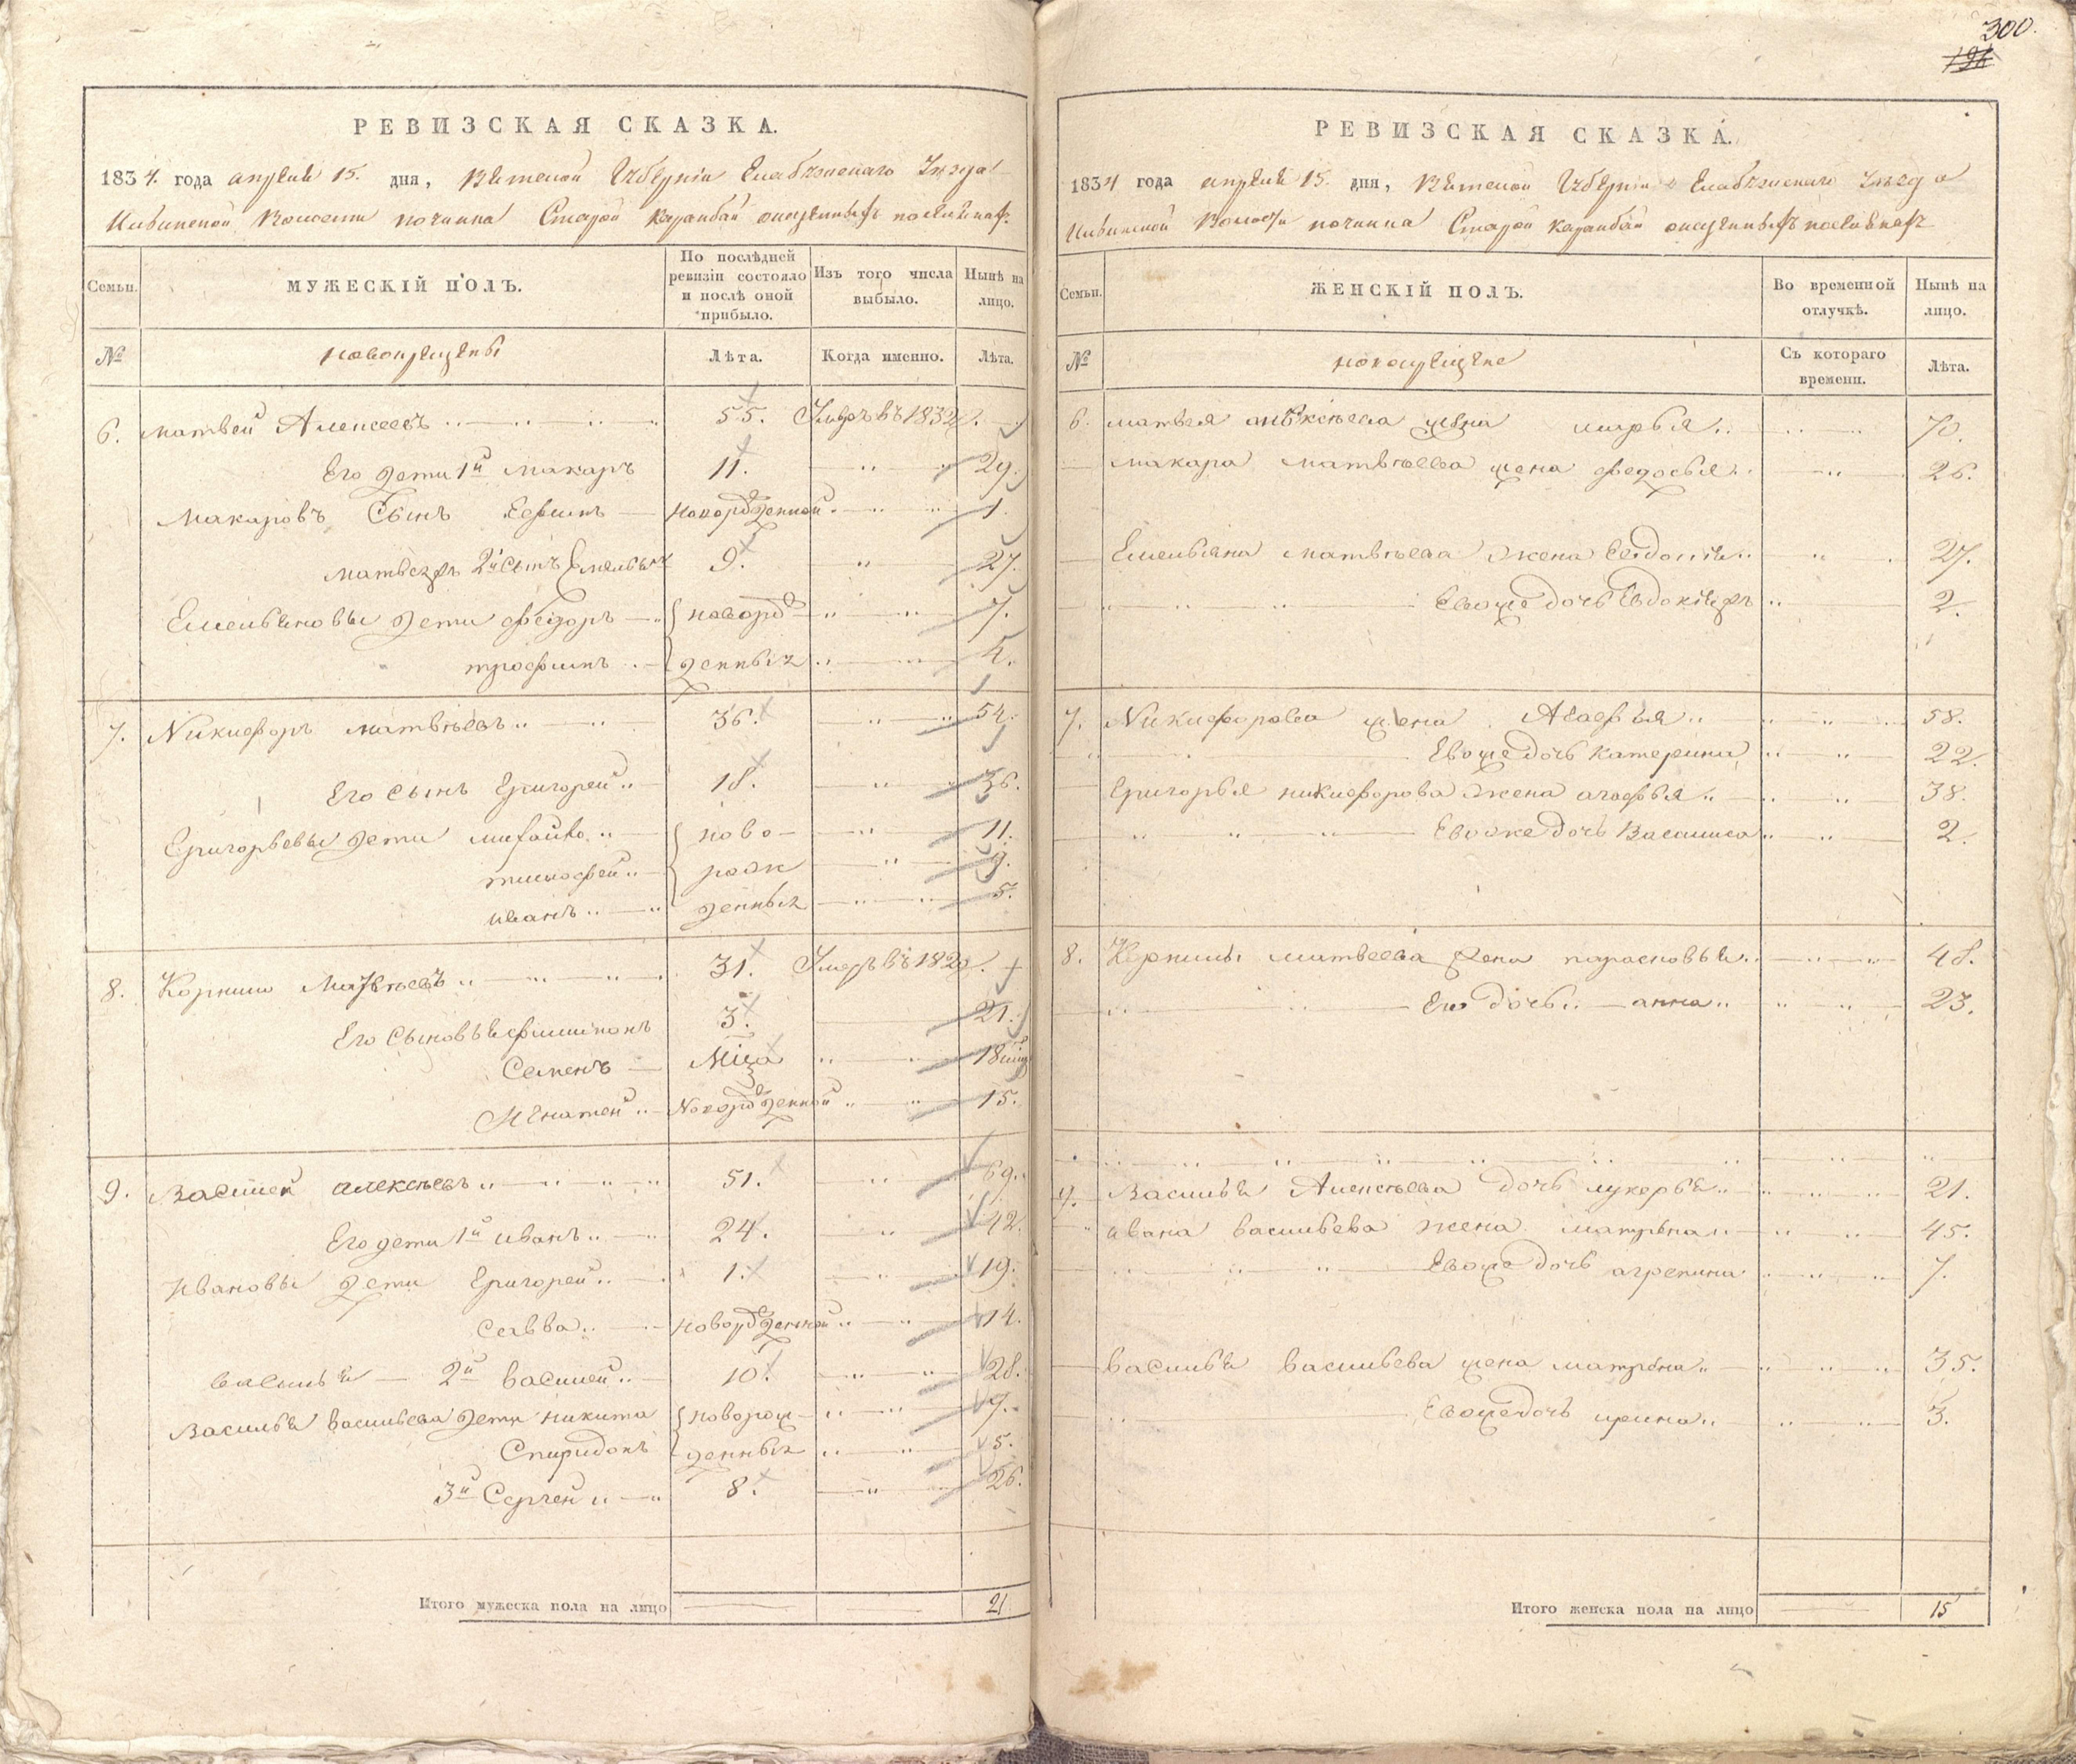 300.
РЕВИЗСКАЯ СКАЗКА.
1834. года апреля 15. дня, Вятской Губернiи Елабужскаго Уезда
Волости починка Старой Карамбай
Семьи.
МУЖЕСКIЙ ПОЛЪ.
По послѣдней ревизiи состояло и послѣ оной прибыло.
Изъ того числа выбыло.
Нынѣ на лицо.
№
новокрещены
Лѣта.
Когда именно.
Лѣта.
6. матвей Алексеевъ 55. Умеръ въ 1832.
Его дети 1й макаръ 11. 29.
Макаровъ Сынъ Ефимъ новорожденной 1.
2й Сынъ Емельянъ 9. 27.
Емельяновы дети федоръ новорож 7.
трофимъ денныхъ
7. Никифоръ матвѣевъ 36. 54.
Его Сынъ Григорей 18. 36.
Григорьевы дети михайло ново 11.
тимофей рож 9.
иванъ денныхъ 5.
8. Корнило Матвѣевъ 31. Умеръ въ
Его Сыновья филипонъ 3. 21.
Семенъ Мiца 18
Игнатей Новорожденной 15.
9. Василей алексѣевъ 51. 69.
Его дети 1й иванъ 24. 42.
Ивановы дети Григорей 1. 19.
Савва новорожденной 14.
василья 2й василей 10. 28.
Василья васильева дети никита новорож 7.
Спиридонъ денныхъ 5.
3й Сергей 8. 26.
Итого мужеска пола на лицо 21
РЕВИЗСКАЯ СКАЗКА.
1834 года апреля 15. дня, Вятской Губернiи Елабужскаго Уезда
Волости починка Старой Карамбай
Семьи.
ЖЕНСКIЙ ПОЛЪ.
Во временной отлучкѣ.
Нынѣ на лицо.
№
Съ котораго времени.
Лѣта.
6. матвея алексѣева жена марья 70.
макара матвѣева жена федосья 26.
Емельяна матвѣева жена 27.
Евоже дочь 2.
7. Никифорова жена Агафья 58.
Евоже дочь катерина 22.
Григорья никифорова жена агафья 38.
Евоже дочь Василиса 2.
8. Корнилы матвеева жена парасковья 48.
Его дочь анна 23.
9. Василья Алексѣева дочь лукерья 21.
ивана васильева жена матрена 45.
Евоже дочь агрепина 7.
василья васильева жена матрена 35.
Евоже дочь ирина 3.
Итого женска пола на лицо 15